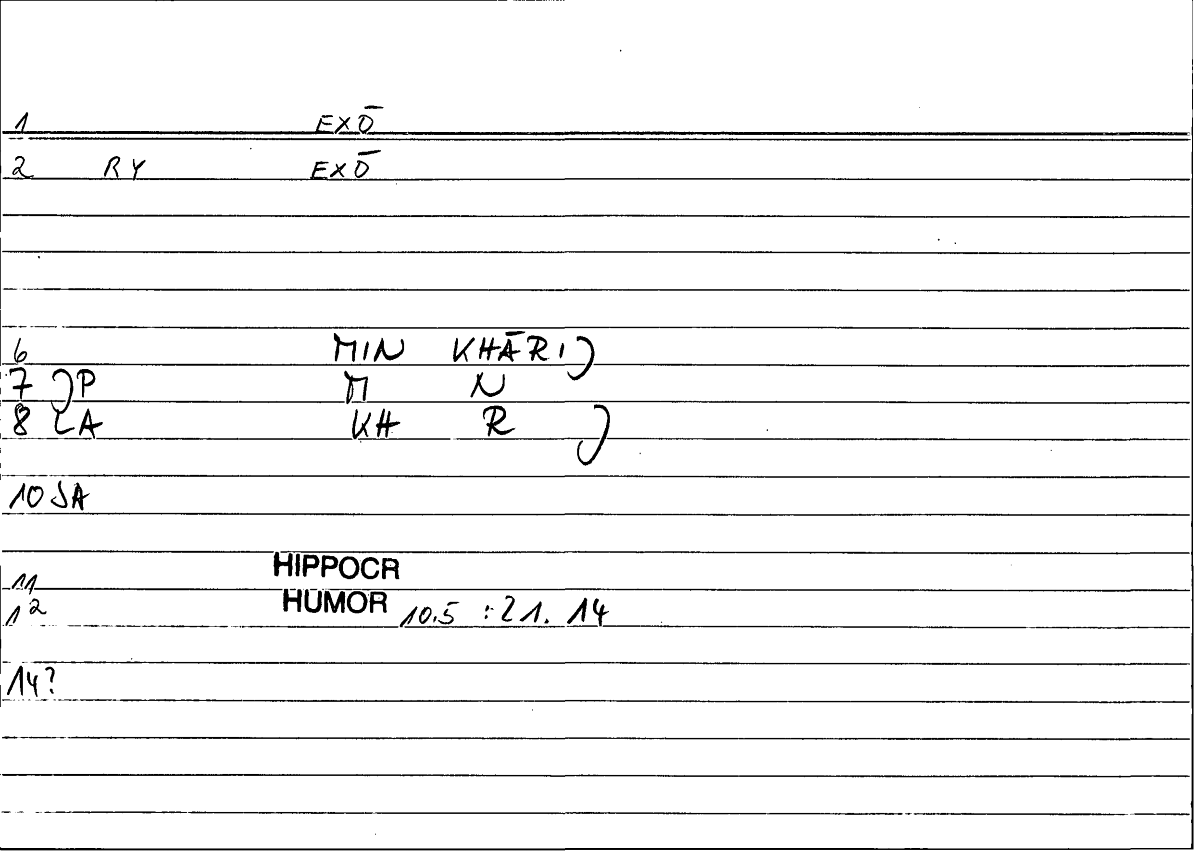 1 EXŌ
2 RY EXŌ
6 MIN KHĀRIJ
7 JP M N
8 LA KH R J
10 JA
11 HIPPOCR
12 HUMOR 10.5 : 21. 14
14?